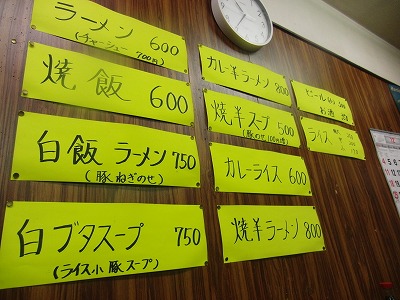 ラーメン 600
(チャーシュー 700円)
焼飯 600
白飯 ラーメン 750
(豚ねぎのせ)
白ブタスープ 750
(ライス小 豚スープ)
カレー羊ラーメン 800
焼羊スープ 500
(豚のせ 100円増)
カレーライス 600
焼羊ラーメン 800
ビール
お酒
ライス